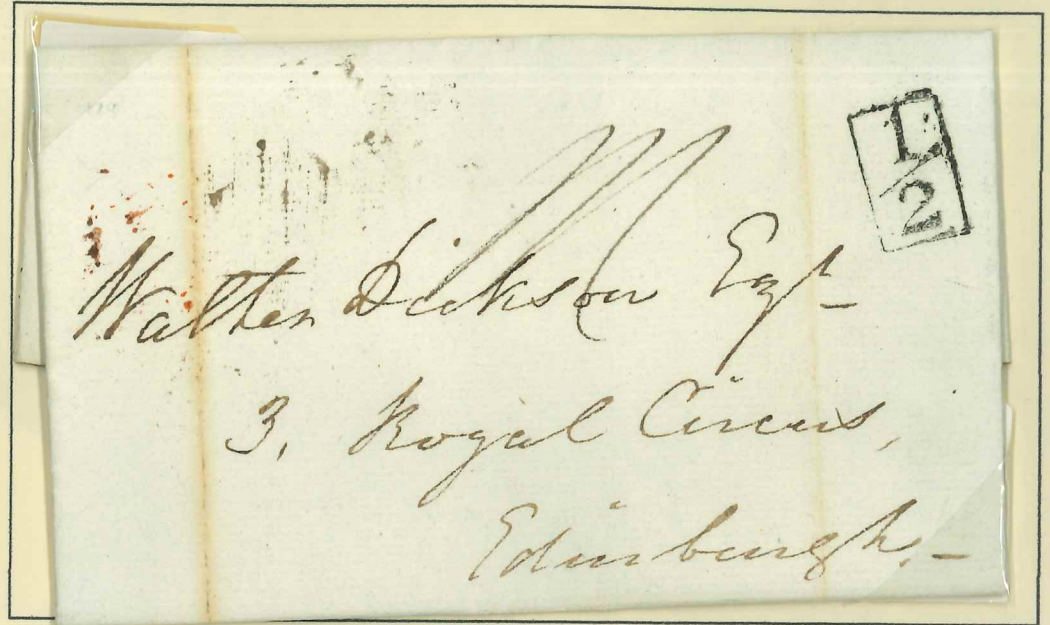 1/2
Walter Dickson Esqr
3, Royal Circus,
Edinburgh.